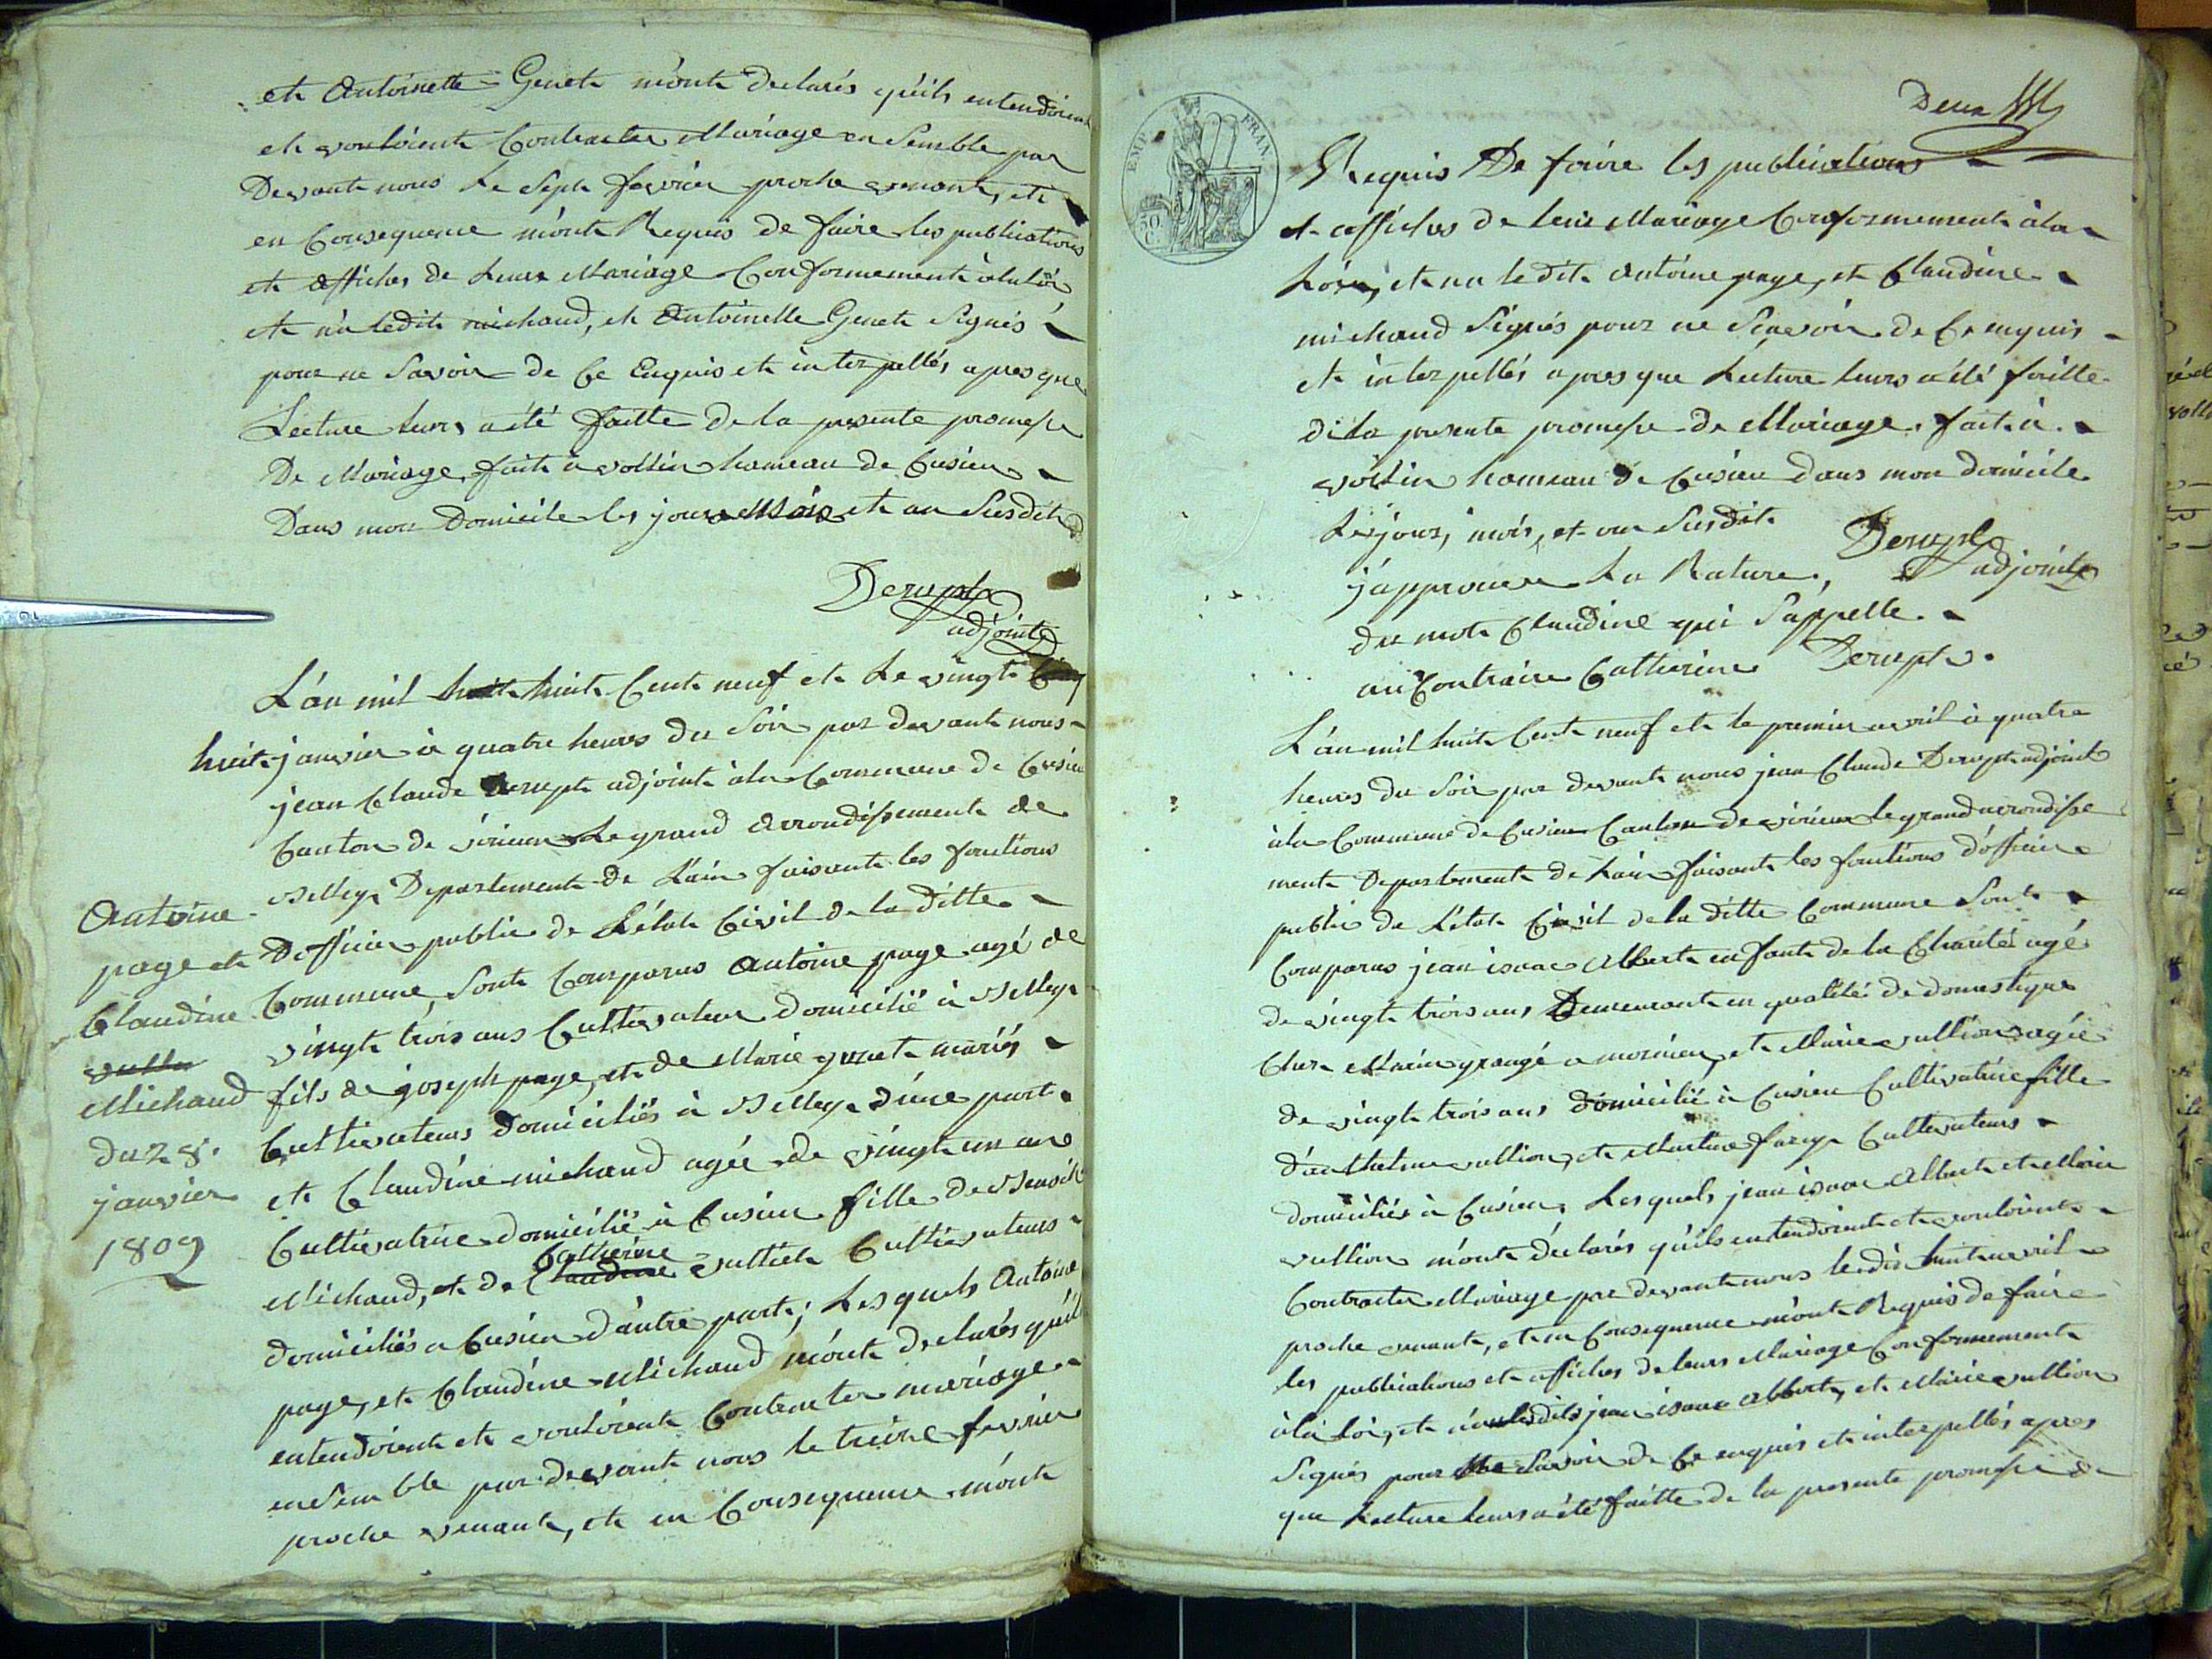 et Antoinette Genet m'ont declarés qu'ils entendoient
et vouloient Contracter Mariage en Semble par
Devant nous Le Sept fevrier proche venant, et
en Consequence m'ont Requis de faire les publications
et affiches de Leurs Mariage Conformement à la loi
et n'a ledit michaud, et Antoinette Genet Signés
pour ne Savoir de Ce Enquis et interpellés apres que
Lecture leurs a été faitte De la presente promesse
De Mariage, fait à vollien hameau de Cusieu
Dans mon Domicile les jour Mois et an Susdit
Derupt
adjoint
L'an mil huit Cent neuf et Le vingt
huit janvier à quatre heures du Soir par devant nous
jean Claude Derupt adjoint à la Commune de Cusieu
Canton de virieux Le grand arrondissement de
Belley Departement de L'ain faisant les fonctions
D'officier public de L'état Civil de la ditte
Commune, Sont Comparus Antoine page agé de
vingt trois ans Cultivateur domicilié à Belley
fils de joseph page, et de Marie genet mariés
Cultivateurs domiciliés à Belley d'une part
et Claudine michaud agée de vingt un ans
Cultivatrice domicilié à Cusieu fille de Benoit
Catherine
Michaud, et de Claudine vulliet Cultivateurs
domiciliés a Cusieu d'autre part; Lesquels Antoine
page, et Claudine Michaud m'ont declarés qu'ils
entendoient et vouloient Contracter mariage
ensemble par devant nous le treize fevrier
proche venant, et en Consequence m'ont
Antoine
page et
Claudine
Michaud
du 28.
janvier
1809
Deux
EMP. FRAN.
50 C.
Requis De faire les publications
et affiches de leur Mariage Conformement à la
Loi, et n'a ledit antoine page, et Claudine
michaud Signés pour ne Scavoir de Ce enquis
et interpellés apres que Lecture leurs a été faitte
de la presente promesse de Mariage. fait à
vollien hameau de Cusieu dans mon domicile
Les jour, mois, et an Susdit
Derupt
adjoint
j'approuve La Rature,
du mot Claudine qui S'appelle
au Contraire Catherine Derupt.
L'an mil huit Cent neuf et le premier avril à quatre
heures du Soir par devant nous jean Claude Derupt adjoint
à la Commune de Cusieu Canton de virieux le grand arrondisse
ment Departement de L'ain faisant les fonctions d'officier
public de L'état Civil de la ditte Commune Sont
Comparus jean isaac Albert enfant de la Charité agé
de vingt trois ans Demeurant en qualité de domestique
Chez grangé a et Marie vullion agée
de vingt trois ans domicilié à Cusieu Cultivatrice fille
d'anthelme vullion, et Cultivateurs
domiciliés à Cusieu, Lesquels jean isaac Albert et Marie
vullion m'ont declarés qu'ils entendoient et vouloient
Contracter Mariage par devant nous le dix huit avril
proche venant, et en Consequence m'ont Requis de faire
les publications et affiches de leurs Mariage Conformement
à la loi, et n'ont lesdits jean isaac Albert, et Marie vullion
Signés pour ne Savoir de Ce enquis et interpellés apres
que Lecture leurs a été faitte de la presente promesse de